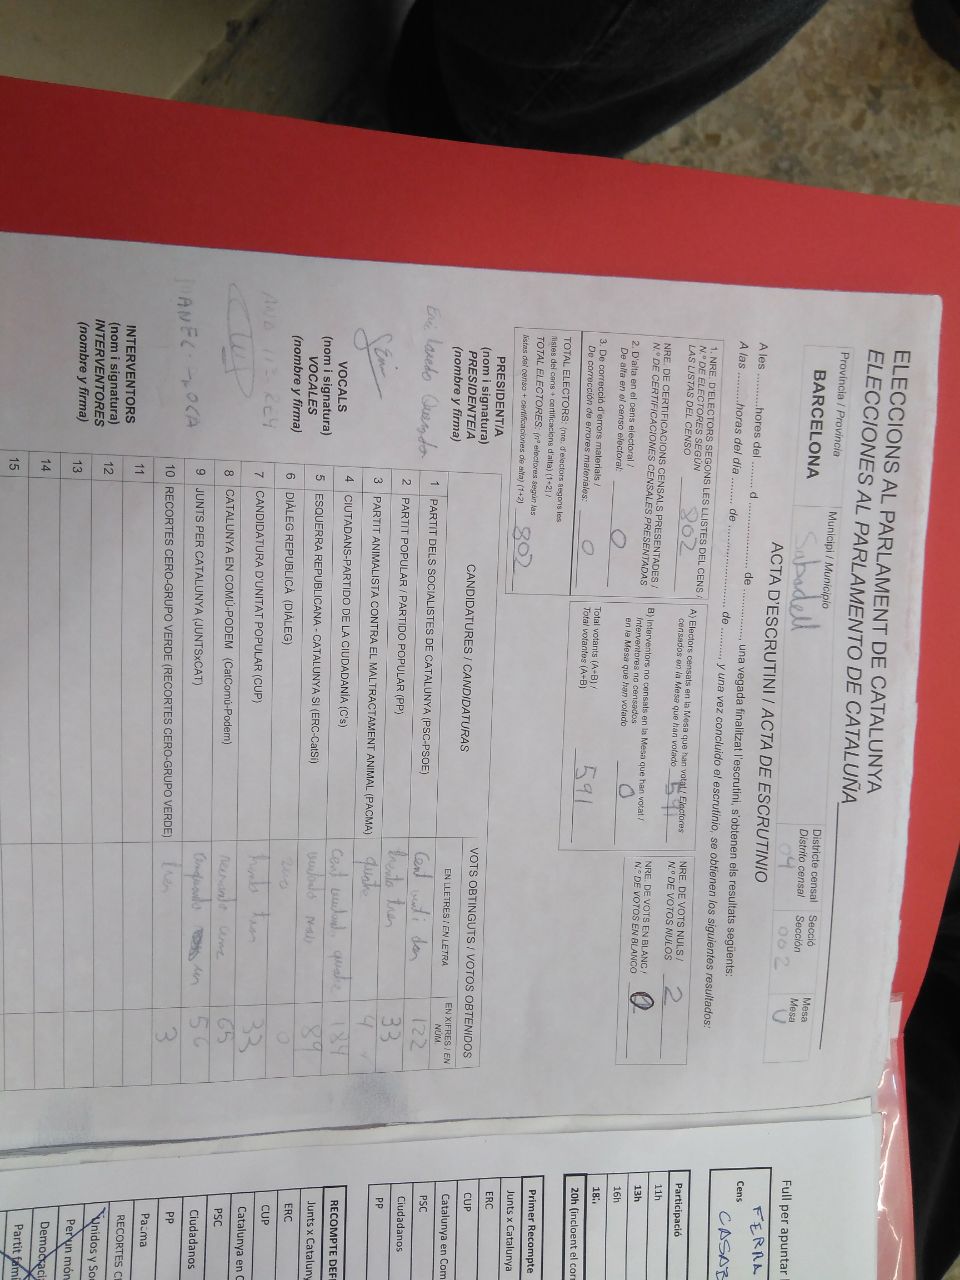 ELECCIONS AL PARLAMENT DE CATALUNYA
ELECCIONES AL PARLAMENTO DE CATALUÑA
Província / Provincia
BARCELONA
Municipi / Municipio
Sabadell
Districte censal
Distrito censal
04
Secció
Sección
002
Mesa
Mesa
U
ACTA D'ESCRUTINI / ACTA DE ESCRUTINIO
A les ..........hores del ........ d ................... de ............, una vegada finalitzat l'escrutini, s'obtenen els resultats següents:
A las ..........horas del día ........ de ........................ de ........, y una vez concluido el escrutinio, se obtienen los siguientes resultados:
1. NRE. D'ELECTORS SEGONS LES LLISTES DEL CENS /
N.º DE ELECTORES SEGÚN
LAS LISTAS DEL CENSO
802
NRE. DE CERTIFICACIONS CENSALS PRESENTADES /
N.º DE CERTIFICACIONES CENSALES PRESENTADAS
2. D'alta en el cens electoral /
De alta en el censo electoral:
0
3. De correcció d'errors materials /
De corrección de errores materiales:
0
TOTAL ELECTORS: (nre. d'electors segons les
llistes del cens + certificacions d'alta) (1+2) /
TOTAL ELECTORES: (nº electores según las
listas del censo + certificaciones de alta) (1+2)
802
A) Electors censats en la Mesa que han votat / Electores
censados en la Mesa que han votado
591
B) Interventors no censats en la Mesa que han votat /
Interventores no censados
en la Mesa que han votado
0
Total votants (A+B) /
Total votantes (A+B)
591
NRE. DE VOTS NULS /
N.º DE VOTOS NULOS
2
NRE. DE VOTS EN BLANC /
N.º DE VOTOS EN BLANCO
PRESIDENT/A
(nom i signatura)
PRESIDENTE/A
(nombre y firma)
VOCALS
(nom i signatura)
VOCALES
(nombre y firma)
INTERVENTORS
(nom i signatura)
INTERVENTORES
(nombre y firma)
CANDIDATURES / CANDIDATURAS
VOTS OBTINGUTS / VOTOS OBTENIDOS
EN LLETRES / EN LETRA
EN XIFRES / EN NÚM.
1 PARTIT DELS SOCIALISTES DE CATALUNYA (PSC-PSOE) 122
2 PARTIT POPULAR / PARTIDO POPULAR (PP) trenta tres 33
3 PARTIT ANIMALISTA CONTRA EL MALTRACTAMENT ANIMAL (PACMA) 4
4 CIUTADANS-PARTIDO DE LA CIUDADANÍA (C's) 184
5 ESQUERRA REPUBLICANA - CATALUNYA SÍ (ERC-CatSí) 89
6 DIÀLEG REPUBLICÀ (DIÀLEG) zero 0
7 CANDIDATURA D'UNITAT POPULAR (CUP) trenta tres 33
8 CATALUNYA EN COMÚ-PODEM (CatComú-Podem) 65
9 JUNTS PER CATALUNYA (JUNTSxCAT) 56
10 RECORTES CERO-GRUPO VERDE (RECORTES CERO-GRUPO VERDE) tres 3
11
12
13
14
15
Full per apuntar
Cens
Participació
11h
13h
16h
18h
20h (incloent el cor
Primer Recompte
Junts x Catalunya
ERC
CUP
Catalunya en Com
PSC
Ciudadanos
PP
RECOMPTE DEFI
Junts x Catalun
ERC
CUP
Catalunya en C
PSC
Ciudadanos
PP
Pacma
RECORTES C
Unidos y So
Per un món
Democraci
Partit fami